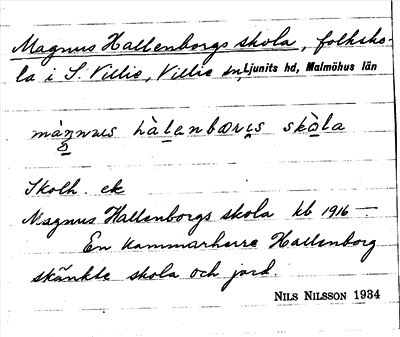 Magnus Hallenborgs skola, folksko-
la i S. Villie, Villie sn, Ljunits hd, Malmöhus län
màŋnɯs hàlanbærɩs skòla
Skolh. ek
Magnus Hallenborgs skola kb 1916 —
En kammarherre Hallenborg
skänkte skola och jord.
NILS NILSSON 1934